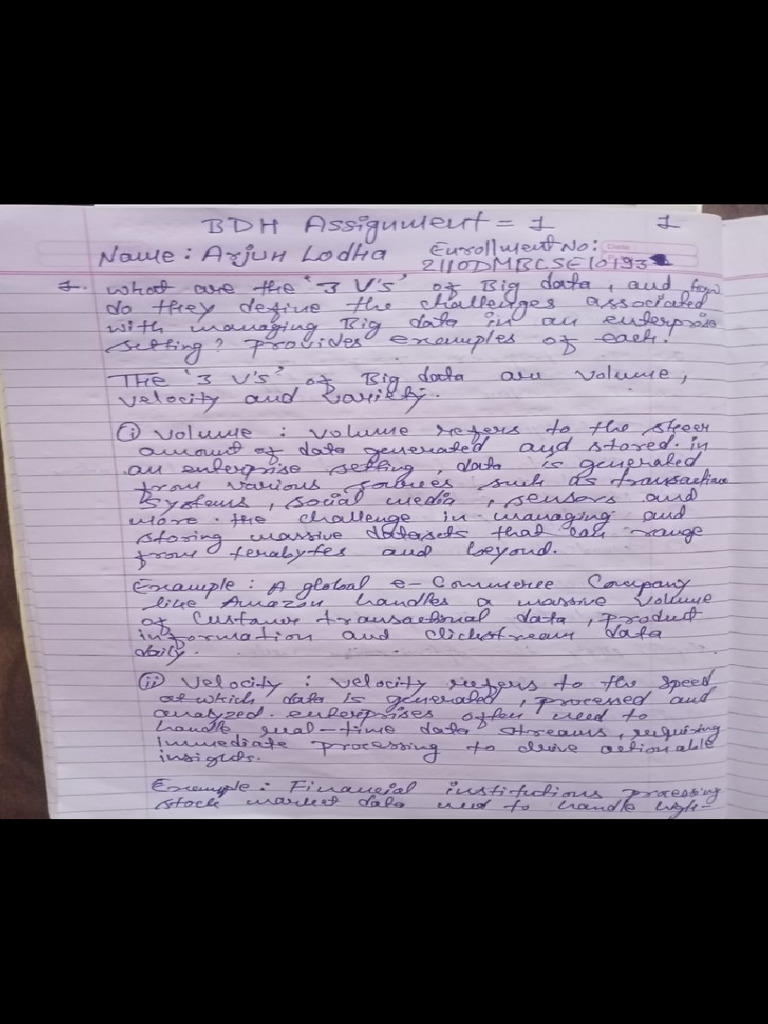 BDH Assignment = 1 1
Name : Arjun Lodha Enrollment No:
2110DMBCSE10193
1. what are the '3 V's' of Big data, and how
do they define the challenges associated
with managing Big data in an enterprise
setting? provides examples of each.
The '3 V's' of Big data are volume,
velocity and variety.
(i) volume : volume refers to the sheer
amount of data generated and stored. in
an enterprise setting, data is generated
from various sources such as transaction
systems, social media, sensors and
more. the challenge in managing and
storing massive datasets that can range
from terabytes and beyond.
Example : A global e-Commerce Company
like Amazon handles a massive volume
of Customer transactional data, product
information and clickstream data
daily.
(ii) velocity : velocity refers to the speed
at which data is generated, processed and
analyzed. enterprises often need to
handle real-time data streams, requiring
immediate processing to drive actionable
insights.
Example : Financial institutions processing
stock market data need to handle high-